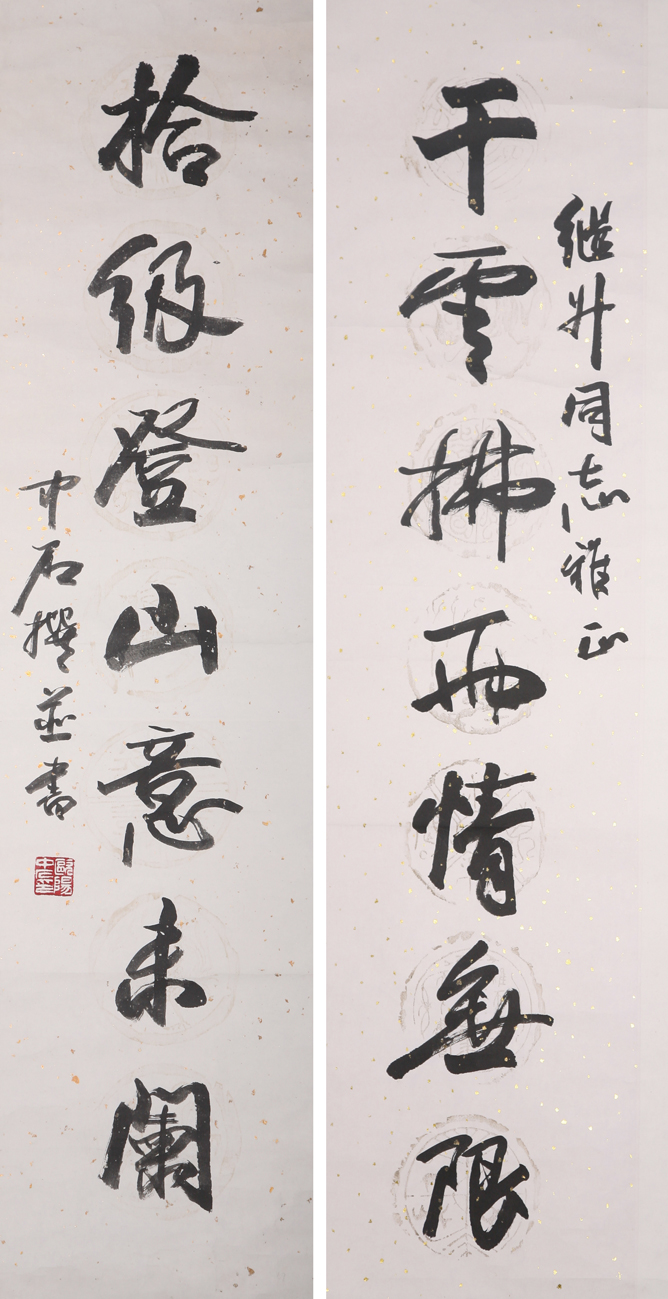 继升同志雅正
干雲拂雨情無限
拾級登山意未闌
中石撰並書
歐陽